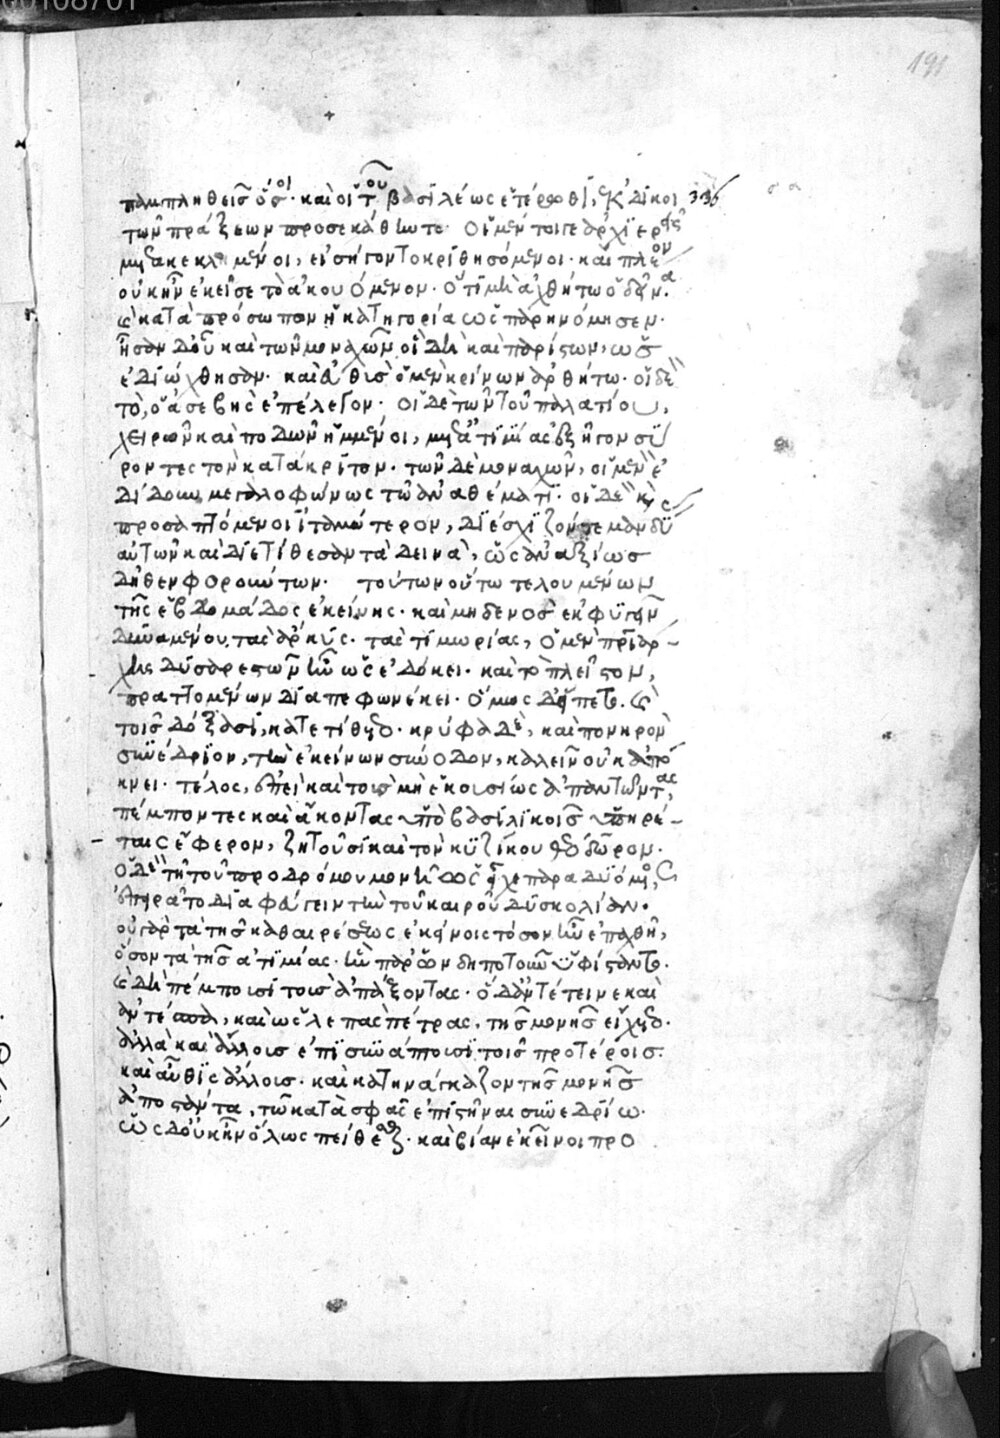 191
παμπληθεῖς ὅσοι· καὶ οἱ τοῦ βασιλέως ἑτέρωθι, κ᾽ δίκοι 336
τῶν πράξεων προσεκάθηωτο· οἱ μέν τοιγε ἀρχιερεῖς
μηδὲ κεκλημένοι, εἰσήγοντο κριθησόμενοι· καὶ πλέον
οὐκ ἦν ἐκεῖσε τὸ ἀκουόμενον· ὅτι μὴ ἀχθήτω ὁ δεῖνα.
καὶ κατὰ πρόσωπον ἡ κατηγορία ὡς παρηνόμησεν·
ἦσαν δ᾽ οὖν καὶ τῶν μοναχῶν οἳ δὴ καὶ παρίστων, ὡς
ἐδιώχθησαν· καὶ αὖθις ὁ μὲν κρίνων ἀρθήτω· οἱ δὲ
τὸ, ὁ ἀσεβὴς ἐπέλεγον· οἱ δὲ τῶν τοῦ παλατίου,
χειρῶν καὶ ποδῶν ἡμμένοι, μετ᾽ ἀτιμίας ἐξῆγον σύ
ροντες τὸν κατάκριτον· τῶν δὲ μοναχῶν, οἱ μὲν ἐ
δίδουν μεγαλοφώνως τῷ ἀναθέματι· οἱ δὲ καὶ
προσαπτόμενοι ἰταμώτερον, διέσχιζόν τε μανδύ
αὐτῶν καὶ διετίθεσαν τὰ δεινὰ, ὡς ἀναξίως
δῆθεν φορούντων· τούτων οὕτω τελουμένων
τῆς ἑβδομάδος ἐκείνης· καὶ μηδενὸς ἐκφυγεῖν
δυναμένου τὰς ἀρχῆς τὰς τιμωρίας, ὁ μὲν πατριάρ-
χης δυσαρεστῶν ἦν ὡς ἐδόκει· καὶ τὸ πλεῖστον,
πραττομένων διαπεφωνέκει· ὅμως δ᾽ εἵπετο· καὶ
τοῖς δόξασι, κατετίθετο· κρύφα δὲ, καὶ πονηρὸν
συνέδριον, τὴν ἐκείνων σύνοδον, καλεῖν οὐκ ἀπό
κνει· τέλος, ἐπεὶ καὶ τοὺς μὴ ἑκουσίως ἀπαντῶντας,
πέμποντες καὶ ἄκοντας ὑπὸ βασιλικοῖς ὑπηρέ-
ταις ἔφερον, ζητοῦσι καὶ τὸν κυζίκου θεόδωρον·
ὁ δὲ τῇ τοῦ προδρόμου μονῇ
ἐπειρᾶτο διαφυγεῖν τὴν τοῦ καιροῦ δυσκολίαν·
οὐ γὰρ τὰ τῆς καθαιρέσεως ἐκείνοις τόσον ἦν ἐπαχθῆ,
ὅσον τὰ τῆς ἀτιμίας· ἣν παρ᾽ ὧν δήποτ᾽ οὖν ὑφίσταντο·
καὶ δὴ πέμπουσι τοὺς ἀπάξοντας· ὁ δ᾽ ἀντέτεινε καὶ
ἀντέσπα, καὶ ὡς λεπὰς πέτρας, τῆς μονῆς εἴχετο·
ἀλλὰ καὶ ἄλλους ἐπισυνάπτουσι τοῖς προτέροις·
καὶ αὖθις ἄλλους· καὶ κατηνάγκαζον τῆς μονῆς
ἀποστάντα, τῷ κατὰ σφᾶς ἐπιστῆναι συνεδρίῳ·
ὡς δ᾽ οὐκ ἦν ὅλως πείθεσθαι· καὶ βίαν ἐκεῖνοι προ